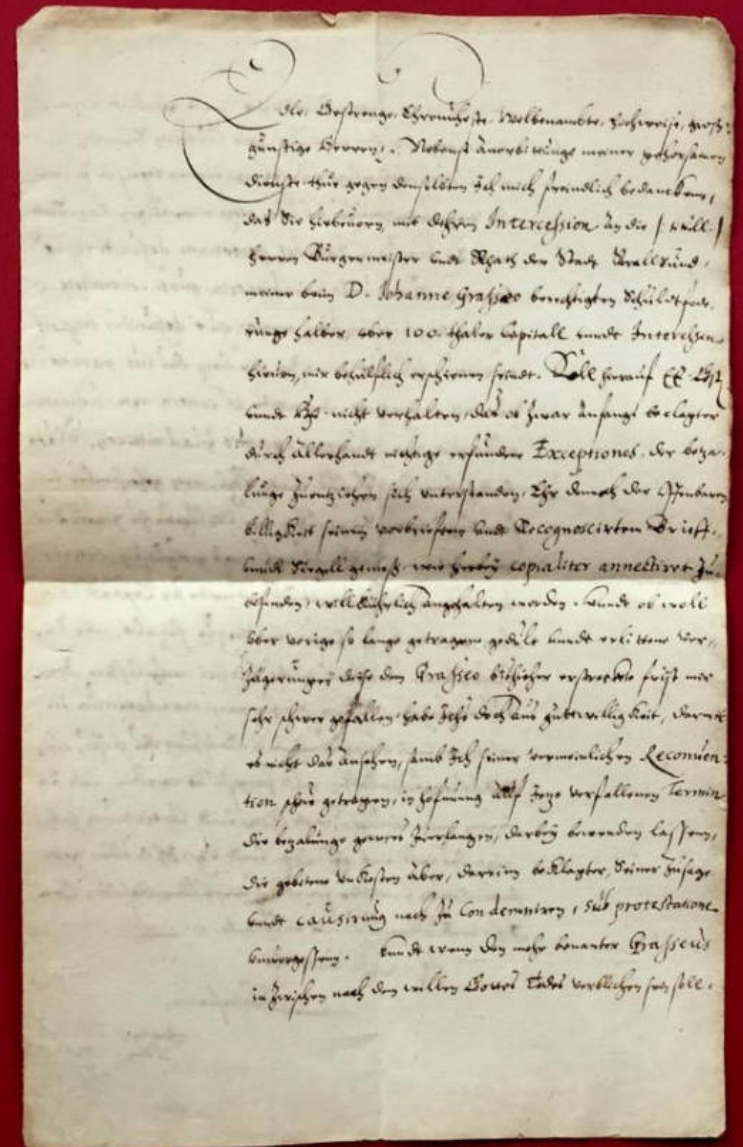 Edle, Gestrenge, Ehrnuheste, Wolbenambte, Hochweise, groß-
günstige Herren, Nebenst anerbittunge meiner gehorsamen
dienste thue gegen denselben Ich mich freundlich bedancken,
das Sie hiebeuorn mit dehren Intercession an die
Herren Bürgermeister vndt Rhath der Stadt Strallsund,
meiner beim D. Johanne Grasseo berechtigten Schuldtfode-
runge halber, vber 100 thaler Capitall vundt Interehsen
hieuon, mir behülflich erschienen seindt. Soll hierauf
vundt nicht verhalten, das ob zwar anfangs beclagter
durch allerhandt nichtige erfundene Exceptiones der beza-
lunge zuentziehen sich vnterstanden, Ehr dennoch der offenbaren
billigkeit seinem vorbrieften vndt Recognoscirtem Brieff
vundt Siegell gemeß, wie hierbey copialiter annectiret zu
befinden, willkührlich angehalten worden, vunde ob woll
vber vorige so lange getragene gedult vundt erlittene Ver-
zögerunges diese dem Grasseo bißhieher erstreckte frist mir
sehr schwer gefallen, habe Ichs doch aus gutwilligkeit, darmit
es nicht das ansehen, samb Ich seiner vermeinlichen Reconuen-
tion scheu getragen, in hofnung auf Itzo verfallenen Termin
die bezalunge gewies zuerlangen, darbey bewenden lassen,
die gebetene vnkosten aber, darein beklagter, Seiner zusage
vundt causirung nach zu Condemniren, sub protestatione
vnuergessen. Vundt wenn den mehr benanter Grasseus
inzwischen nach dem willen Gottes Todes verblichen sein soll,